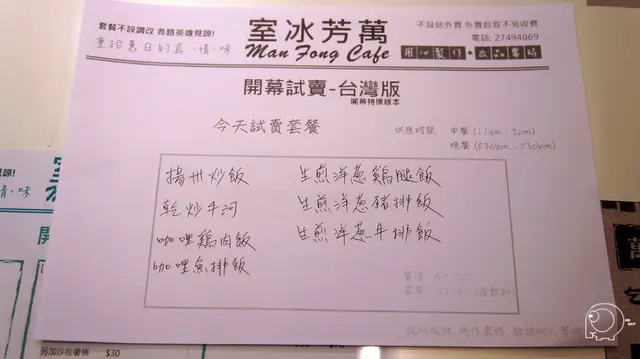 套餐不設調改 各路英雄見諒!
重拾舊日的真、情、味
室冰芳萬
Man Fong Cafe
不設送外賣 外賣自取不另收費
電話: 27494069
用心製作·出品需時
開幕試賣-台灣版
開幕特價版本
今天試賣套餐
供應時間: 中餐 (11am - 2pm)
晚餐 (5:30pm - 7:30pm)
揚州炒飯
乾炒牛河
咖哩鷄肉飯
咖哩魚排飯
生煎洋葱鷄腿飯
生煎洋葱豬排飯
生煎洋葱牛排飯
見諒!
情、味
另加沙拉薯條 $30